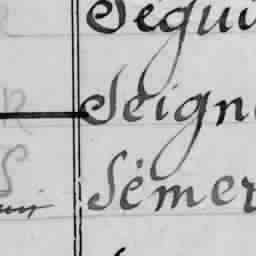 Ségui
Seign
Sémer